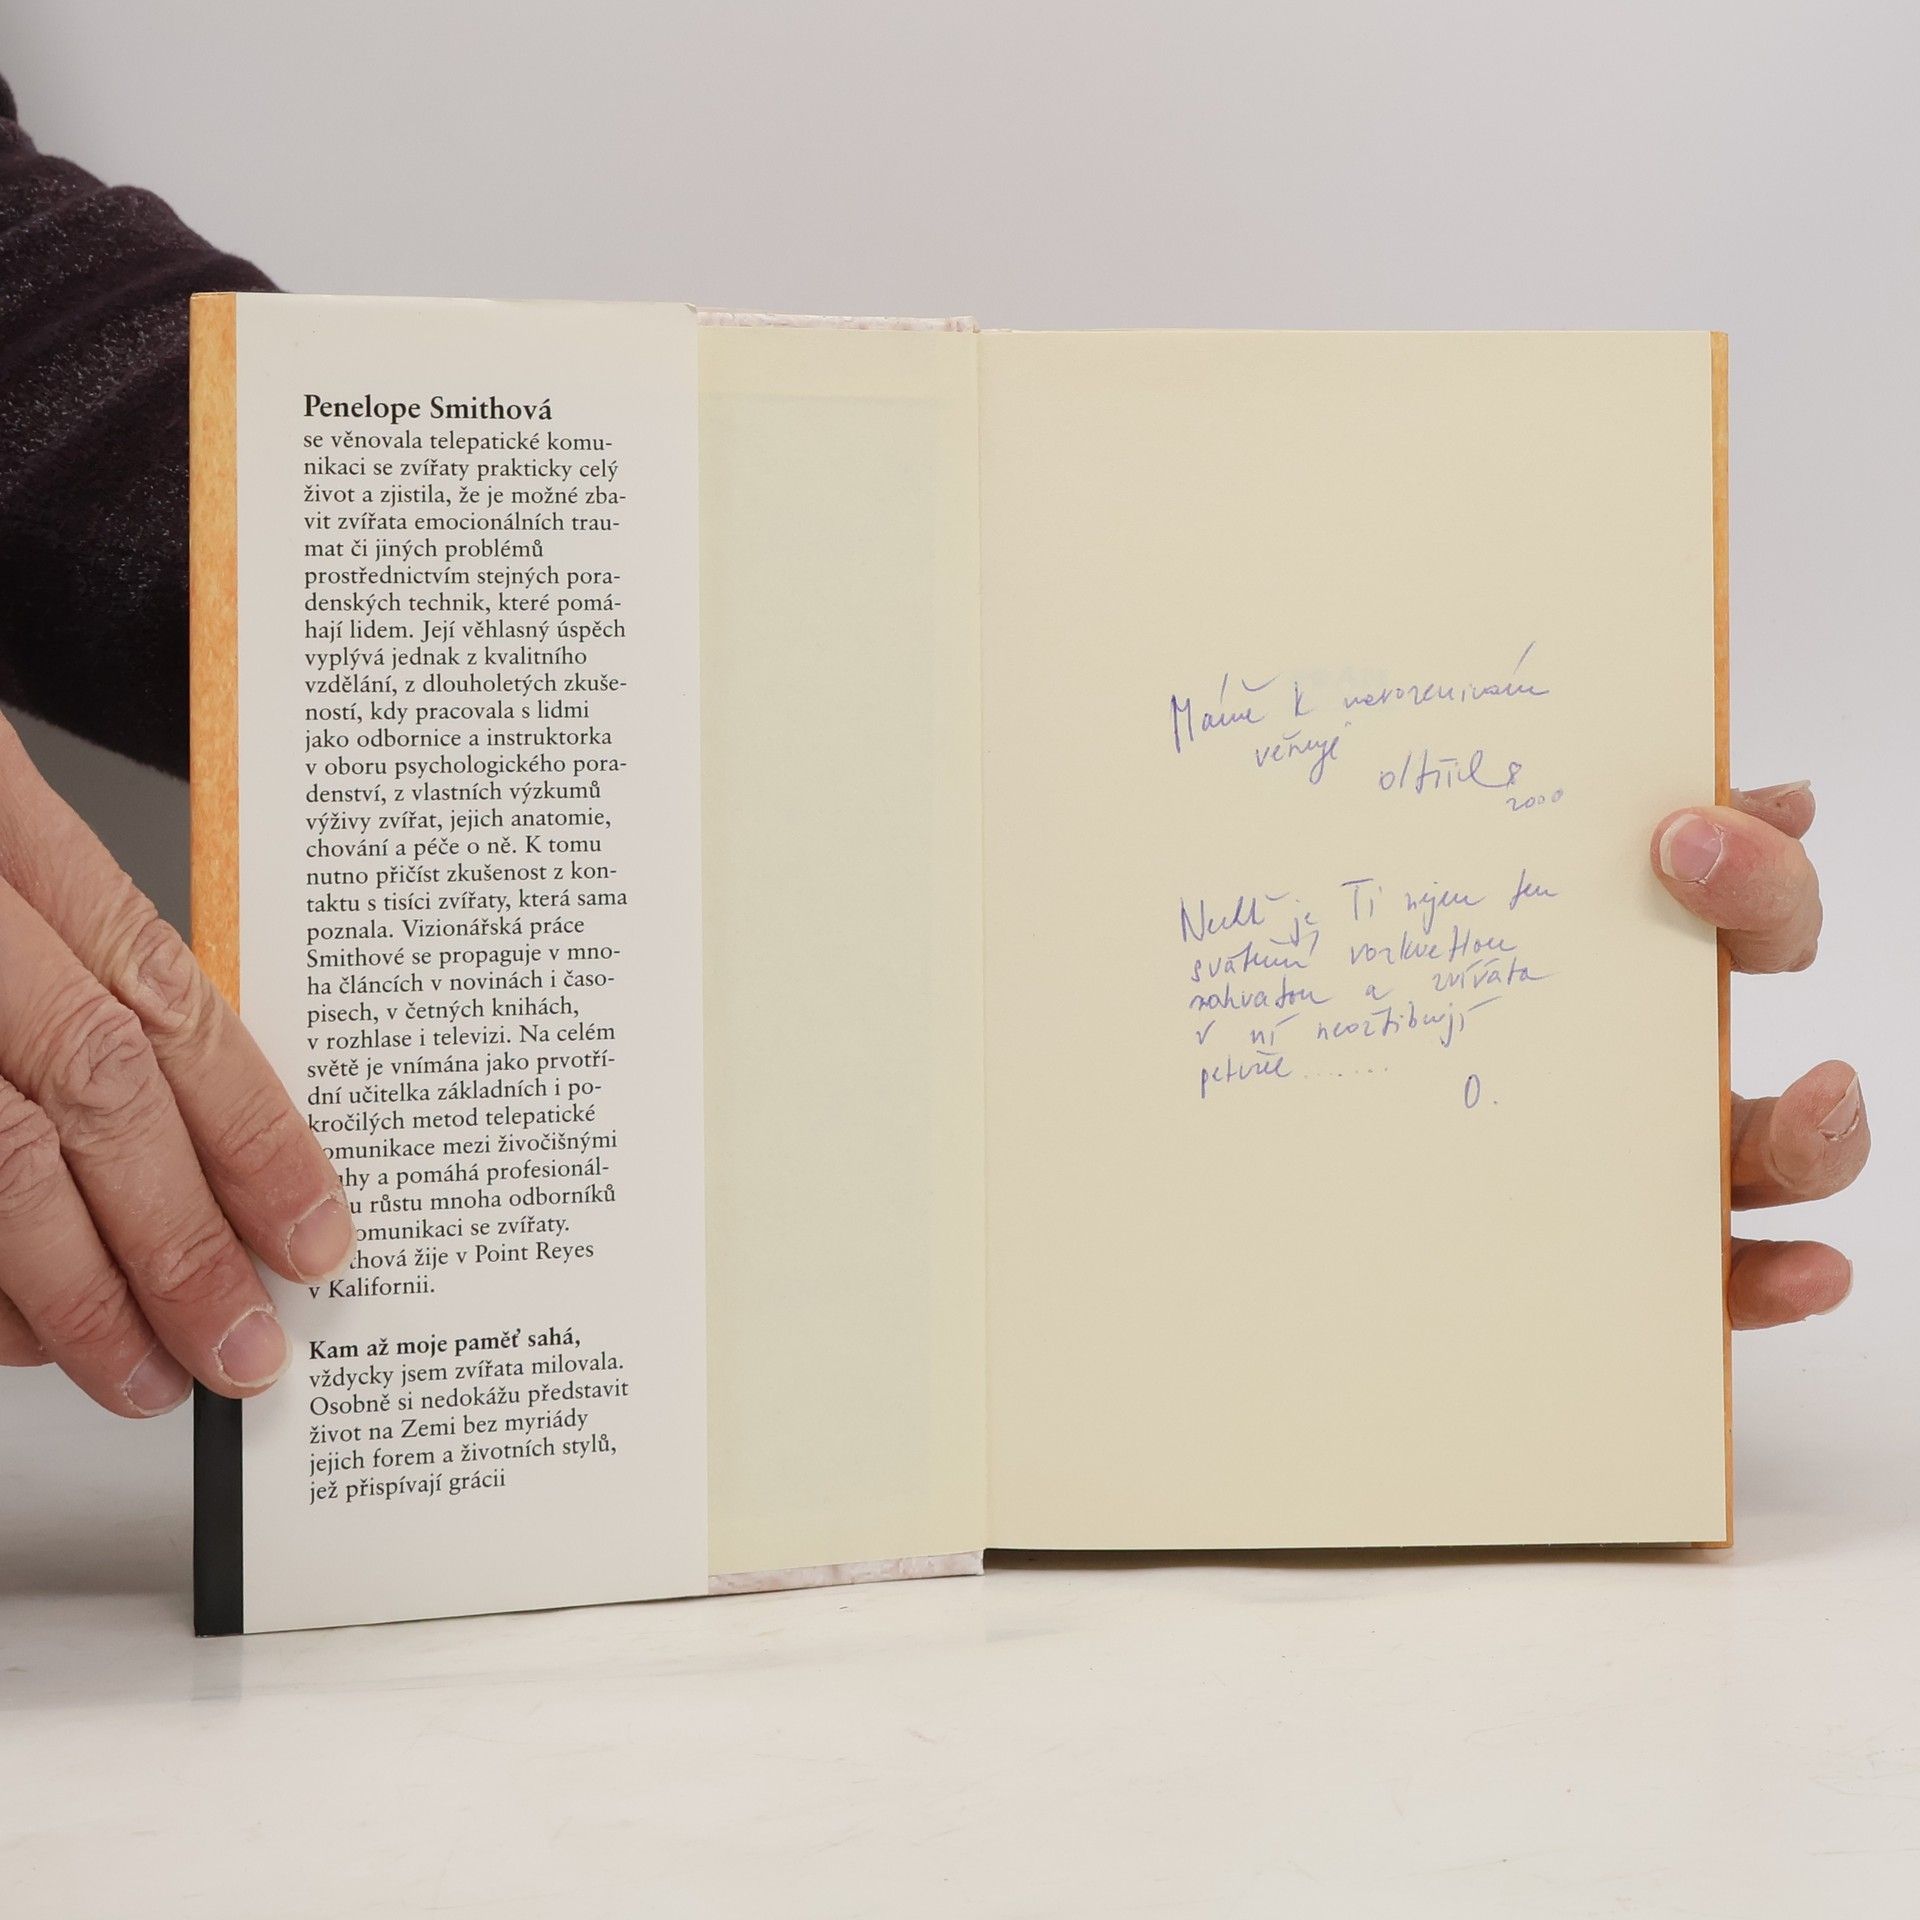 Penelope Smithová
se věnovala telepatické komu-
nikaci se zvířaty prakticky celý
život a zjistila, že je možné zba-
vit zvířata emocionálních trau-
mat či jiných problémů
prostřednictvím stejných pora-
denských technik, které pomá-
hají lidem. Její věhlasný úspěch
vyplývá jednak z kvalitního
vzdělání, z dlouholetých zkuše-
ností, kdy pracovala s lidmi
jako odbornice a instruktorka
v oboru psychologického pora-
denství, z vlastních výzkumů
výživy zvířat, jejich anatomie,
chování a péče o ně. K tomu
nutno přičíst zkušenost z kon-
taktu s tisíci zvířaty, která sama
poznala. Vizionářská práce
Smithové se propaguje v mno-
ha článcích v novinách i časo-
pisech, v četných knihách,
v rozhlase i televizi. Na celém
světě je vnímána jako prvotří-
dní učitelka základních i po-
kročilých metod telepatické
omunikace mezi živočišnými
hy a pomáhá profesionál-
u růstu mnoha odborníků
omunikaci se zvířaty.
thová žije v Point Reyes
v Kalifornii.
Kam až moje paměť sahá,
vždycky jsem zvířata milovala.
Osobně si nedokážu představit
život na Zemi bez myriády
jejich forem a životních stylů,
jež přispívají grácii
Mámě k narozeninám
věnuje
2000
Nechť je Ti nejen ten
rozkvetlou
zahradou a zvířata
v ní
O.